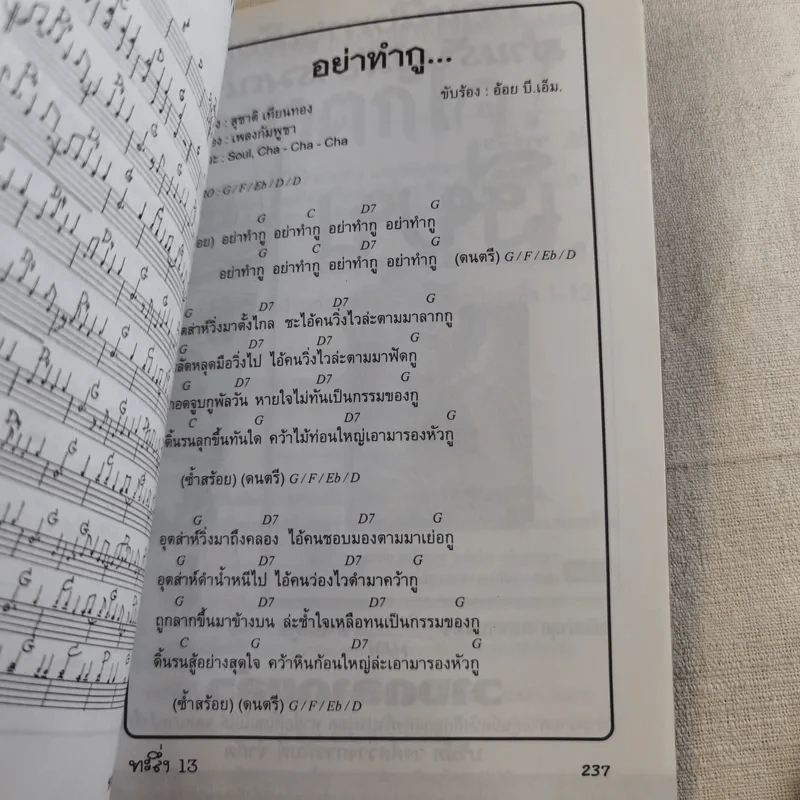 อย่าทำกู...
ขับร้อง : อ้อย บี.เอ็ม.
: สุชาติ เทียนทอง
: เพลงกัมพูชา
: Soul, Cha - Cha - Cha
: G / F / Eb / D / D
G C D7 G
อย่าทำกู อย่าทำกู อย่าทำกู อย่าทำกู
G C D7 G
อย่าทำกู อย่าทำกู อย่าทำกู อย่าทำกู (ดนตรี) G / F / Eb / D
G D7 D7 G
ส่าห์วิ่งมาตั้งไกล ชะไอ้คนวิ่งไวล่ะตามมาลากกู
G D7 D7 G
ลัดหลุดมือวิ่งไป ไอ้คนวิ่งไวล่ะตามมาฟัดกู
G D7 D7 G
กอดจูบกูพัลวัน หายใจไม่ทันเป็นกรรมของกู
C G D7 G
ดิ้นรนลุกขึ้นทันใด คว้าไม้ท่อนใหญ่เอามารองหัวกู
(ซ้ำสร้อย) (ดนตรี) G / F / Eb / D
G D7 D7 G
อุตส่าห์วิ่งมาถึงคลอง ไอ้คนชอบมองตามมาเย่อกู
G D7 D7 G
อุตส่าห์ดำน้ำหนีไป ไอ้คนว่องไวดำมาคว้ากู
G D7 D7 G
ถูกลากขึ้นมาข้างบน ล่ะช้ำใจเหลือทนเป็นกรรมของกู
C G D7 G
ดิ้นรนสู้อย่างสุดใจ คว้าหินก้อนใหญ่ล่ะเอามารองหัวกู
(ซ้ำสร้อย) (ดนตรี) G / F / Eb / D
ทะลึ่ง 13
237